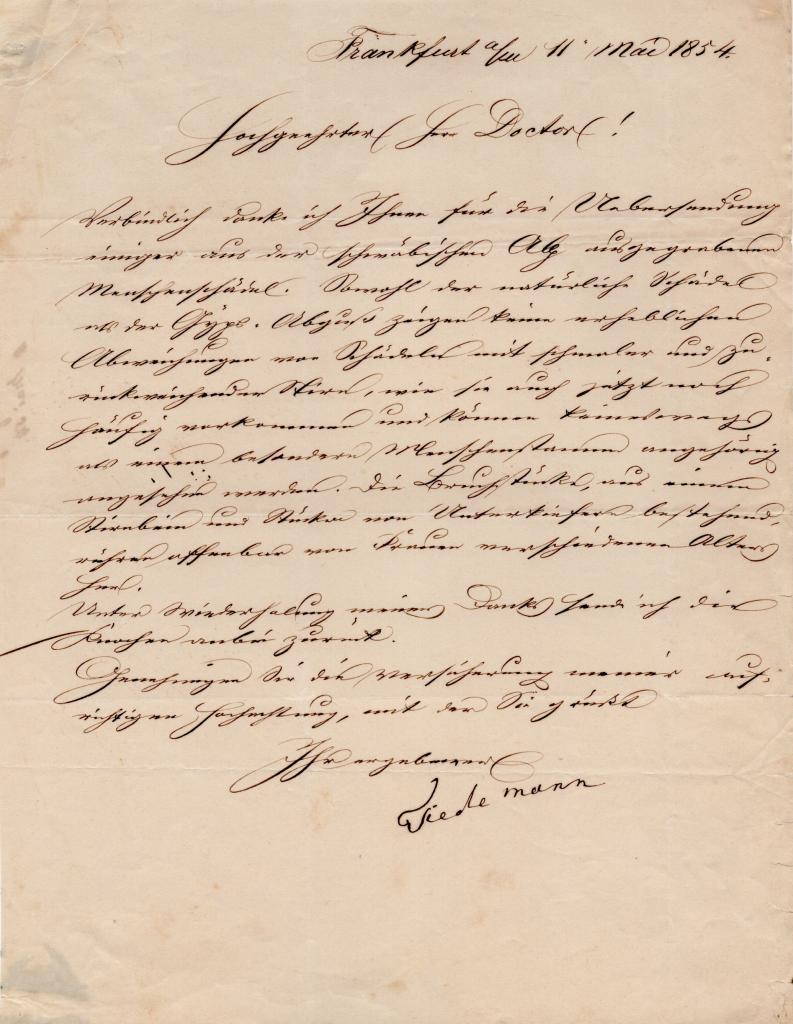 Frankfurt a/m 11 Mai 1854.
Hochgeehrter Herr Doctor!
Verbindlich danke ich Ihnen für die Uebersendung
einiger aus der schwäbischen Alp ausgegrabenen
Menschenschädel. Sowohl der natürliche Schädel
als der Gÿps-Abguß zeigen keine erheblichen
Abweichungen von Schädeln mit schmaler und zu-
rückweichender Stirn, wie sie auch jetzt noch
häufig vorkommen und können keineswegs
als einem besondern Menschenstamm angehörig
angesehen werden. Die Bruchstücke, aus einem
Stirnbein und Stücken von Unterkiefern bestehend,
rühren offenbar von Frauen verschiedenen Alters
her.
Unter Wiederholung meines Danks sende ich die
Knochen anbei zurück.
Genehmigen Sie die Versicherung meiner auf-
richtigen Hochachtung, mit der Sie grüßt
Ihr ergebener
Tiedemann